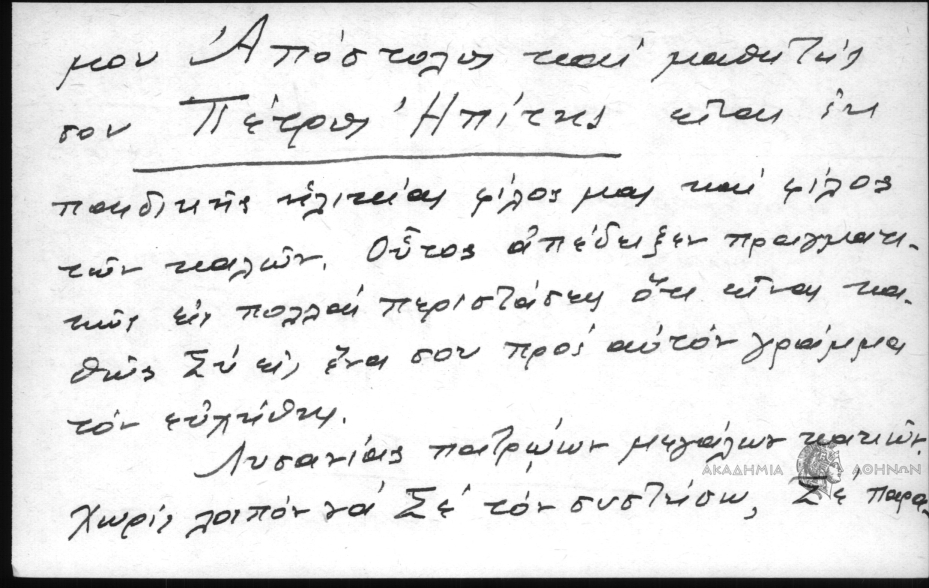 μου Ἀπόστολος καί μαθητής
σου Πέτρος Ἠπίτης εἶναι ἐκ
παιδικῆς ἡλικίας φίλος μας καί φίλος
τῶν καλῶν. Οὗτος ἀπέδειξεν πραγματι-
κῶς εἰς πολλάς περιστάσεις ὅτι εἶναι κα-
θώς Σύ εἰς ἕνα σου πρός αὐτόν γράμμα
τόν εὐχήθης.
Λυσανίας πατρῴων μεγάλων κακῶν.
Χωρίς λοιπόν νά Σέ τόν συστήσω, Σέ παρα-
ΑΚΑΔΗΜΙΑ ΑΘΗΝΩΝ